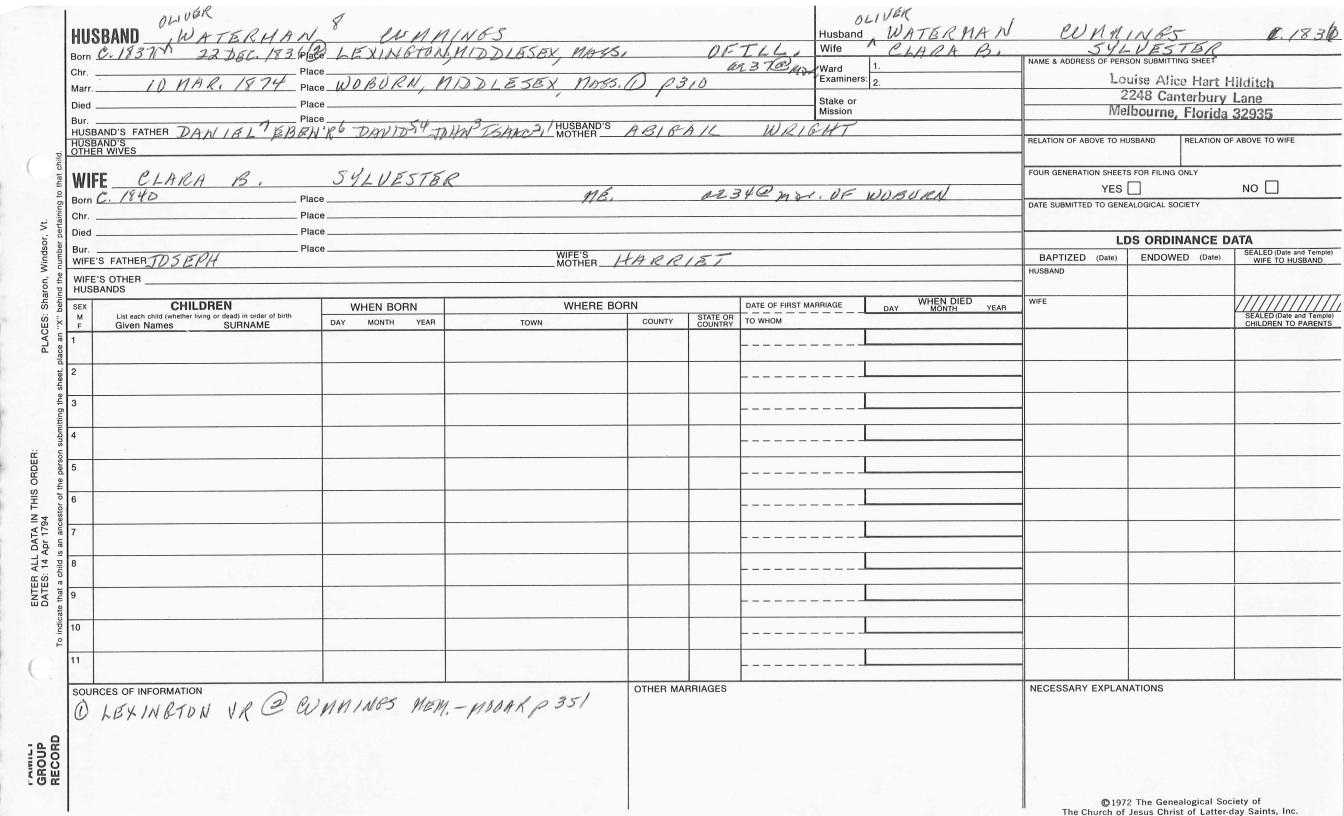 OLIVER
HUSBAND WATERMAN 8 CUMMINGS
Born C. 1837 22 DEC. 1836 ② Place LEXINGTON, MIDDLESEX, MASS. OF ILL.
Chr. Place
Marr. 10 MAR. 1874 Place WOBURN, MIDDLESEX, MASS. ① p310
Died Place
Bur. Place
HUSBAND'S FATHER DANIEL7 EBEN'R6 DAVID54 JOHN3 ISAAC21 HUSBAND'S MOTHER ABIGAIL WRIGHT
HUSBAND'S OTHER WIVES
OLIVER
Husband WATERMAN CUMMINGS C. 1836
Wife CLARA B. SYLVESTER
Ward 1.
Examiners: 2.
Stake or
Mission
NAME & ADDRESS OF PERSON SUBMITTING SHEET
Louise Alice Hart Hilditch
2248 Canterbury Lane
Melbourne, Florida 32935
RELATION OF ABOVE TO HUSBAND RELATION OF ABOVE TO WIFE
FOUR GENERATION SHEETS FOR FILING ONLY
YES NO
DATE SUBMITTED TO GENEALOGICAL SOCIETY
WIFE CLARA B. SYLVESTER
Born C. 1840 Place ME. OF WOBURN
Chr. Place
Died Place
Bur. Place
WIFE'S FATHER JOSEPH WIFE'S MOTHER HARRIET
WIFE'S OTHER
HUSBANDS
LDS ORDINANCE DATA
BAPTIZED (Date) ENDOWED (Date) SEALED (Date and Temple) WIFE TO HUSBAND
HUSBAND
WIFE
SEALED (Date and Temple) CHILDREN TO PARENTS
SEX M F CHILDREN WHEN BORN WHERE BORN DATE OF FIRST MARRIAGE WHEN DIED
List each child (whether living or dead) in order of birth DAY MONTH YEAR
Given Names SURNAME DAY MONTH YEAR TOWN COUNTY STATE OR COUNTRY TO WHOM
1
2
3
4
5
6
7
8
9
10
11
SOURCES OF INFORMATION OTHER MARRIAGES NECESSARY EXPLANATIONS
① LEXINGTON VR ② CUMMINGS MEM. - MOOAR p 351
©1972 The Genealogical Society of
The Church of Jesus Christ of Latter-day Saints, Inc.
ENTER ALL DATA IN THIS ORDER:
DATES: 14 Apr 1794 PLACES: Sharon, Windsor, Vt.
To indicate that a child is an ancestor of the person submitting the sheet, place an "X" behind the number pertaining to that child.
FAMILY
GROUP
RECORD